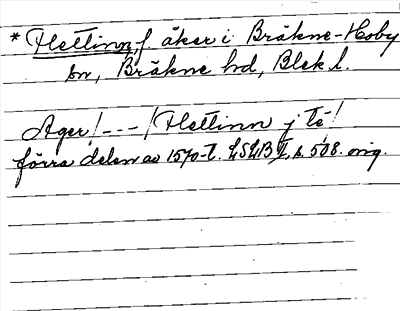 * Hettinn, f. åker i Bräkne-Hoby
sn, Bräkne hd, Blek l.
Ager! --- / Hettinn j té!
förra delen av 1570-t. LSLB I, s. 508. orig.